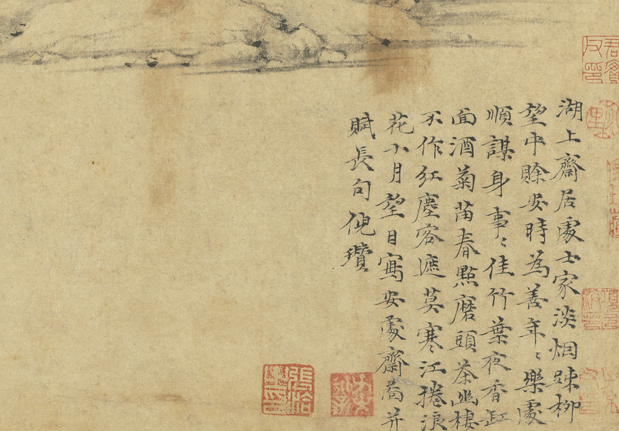 湖上齋居處士家淡烟疎柳
望中賒安時為善年々樂處
順謀身事々佳竹葉夜香缸
面酒菊苗春點磨頭茶幽棲
不作紅塵客遮莫寒江捲浪
花十月望日寫安處齋啚并
賦長句倪瓚